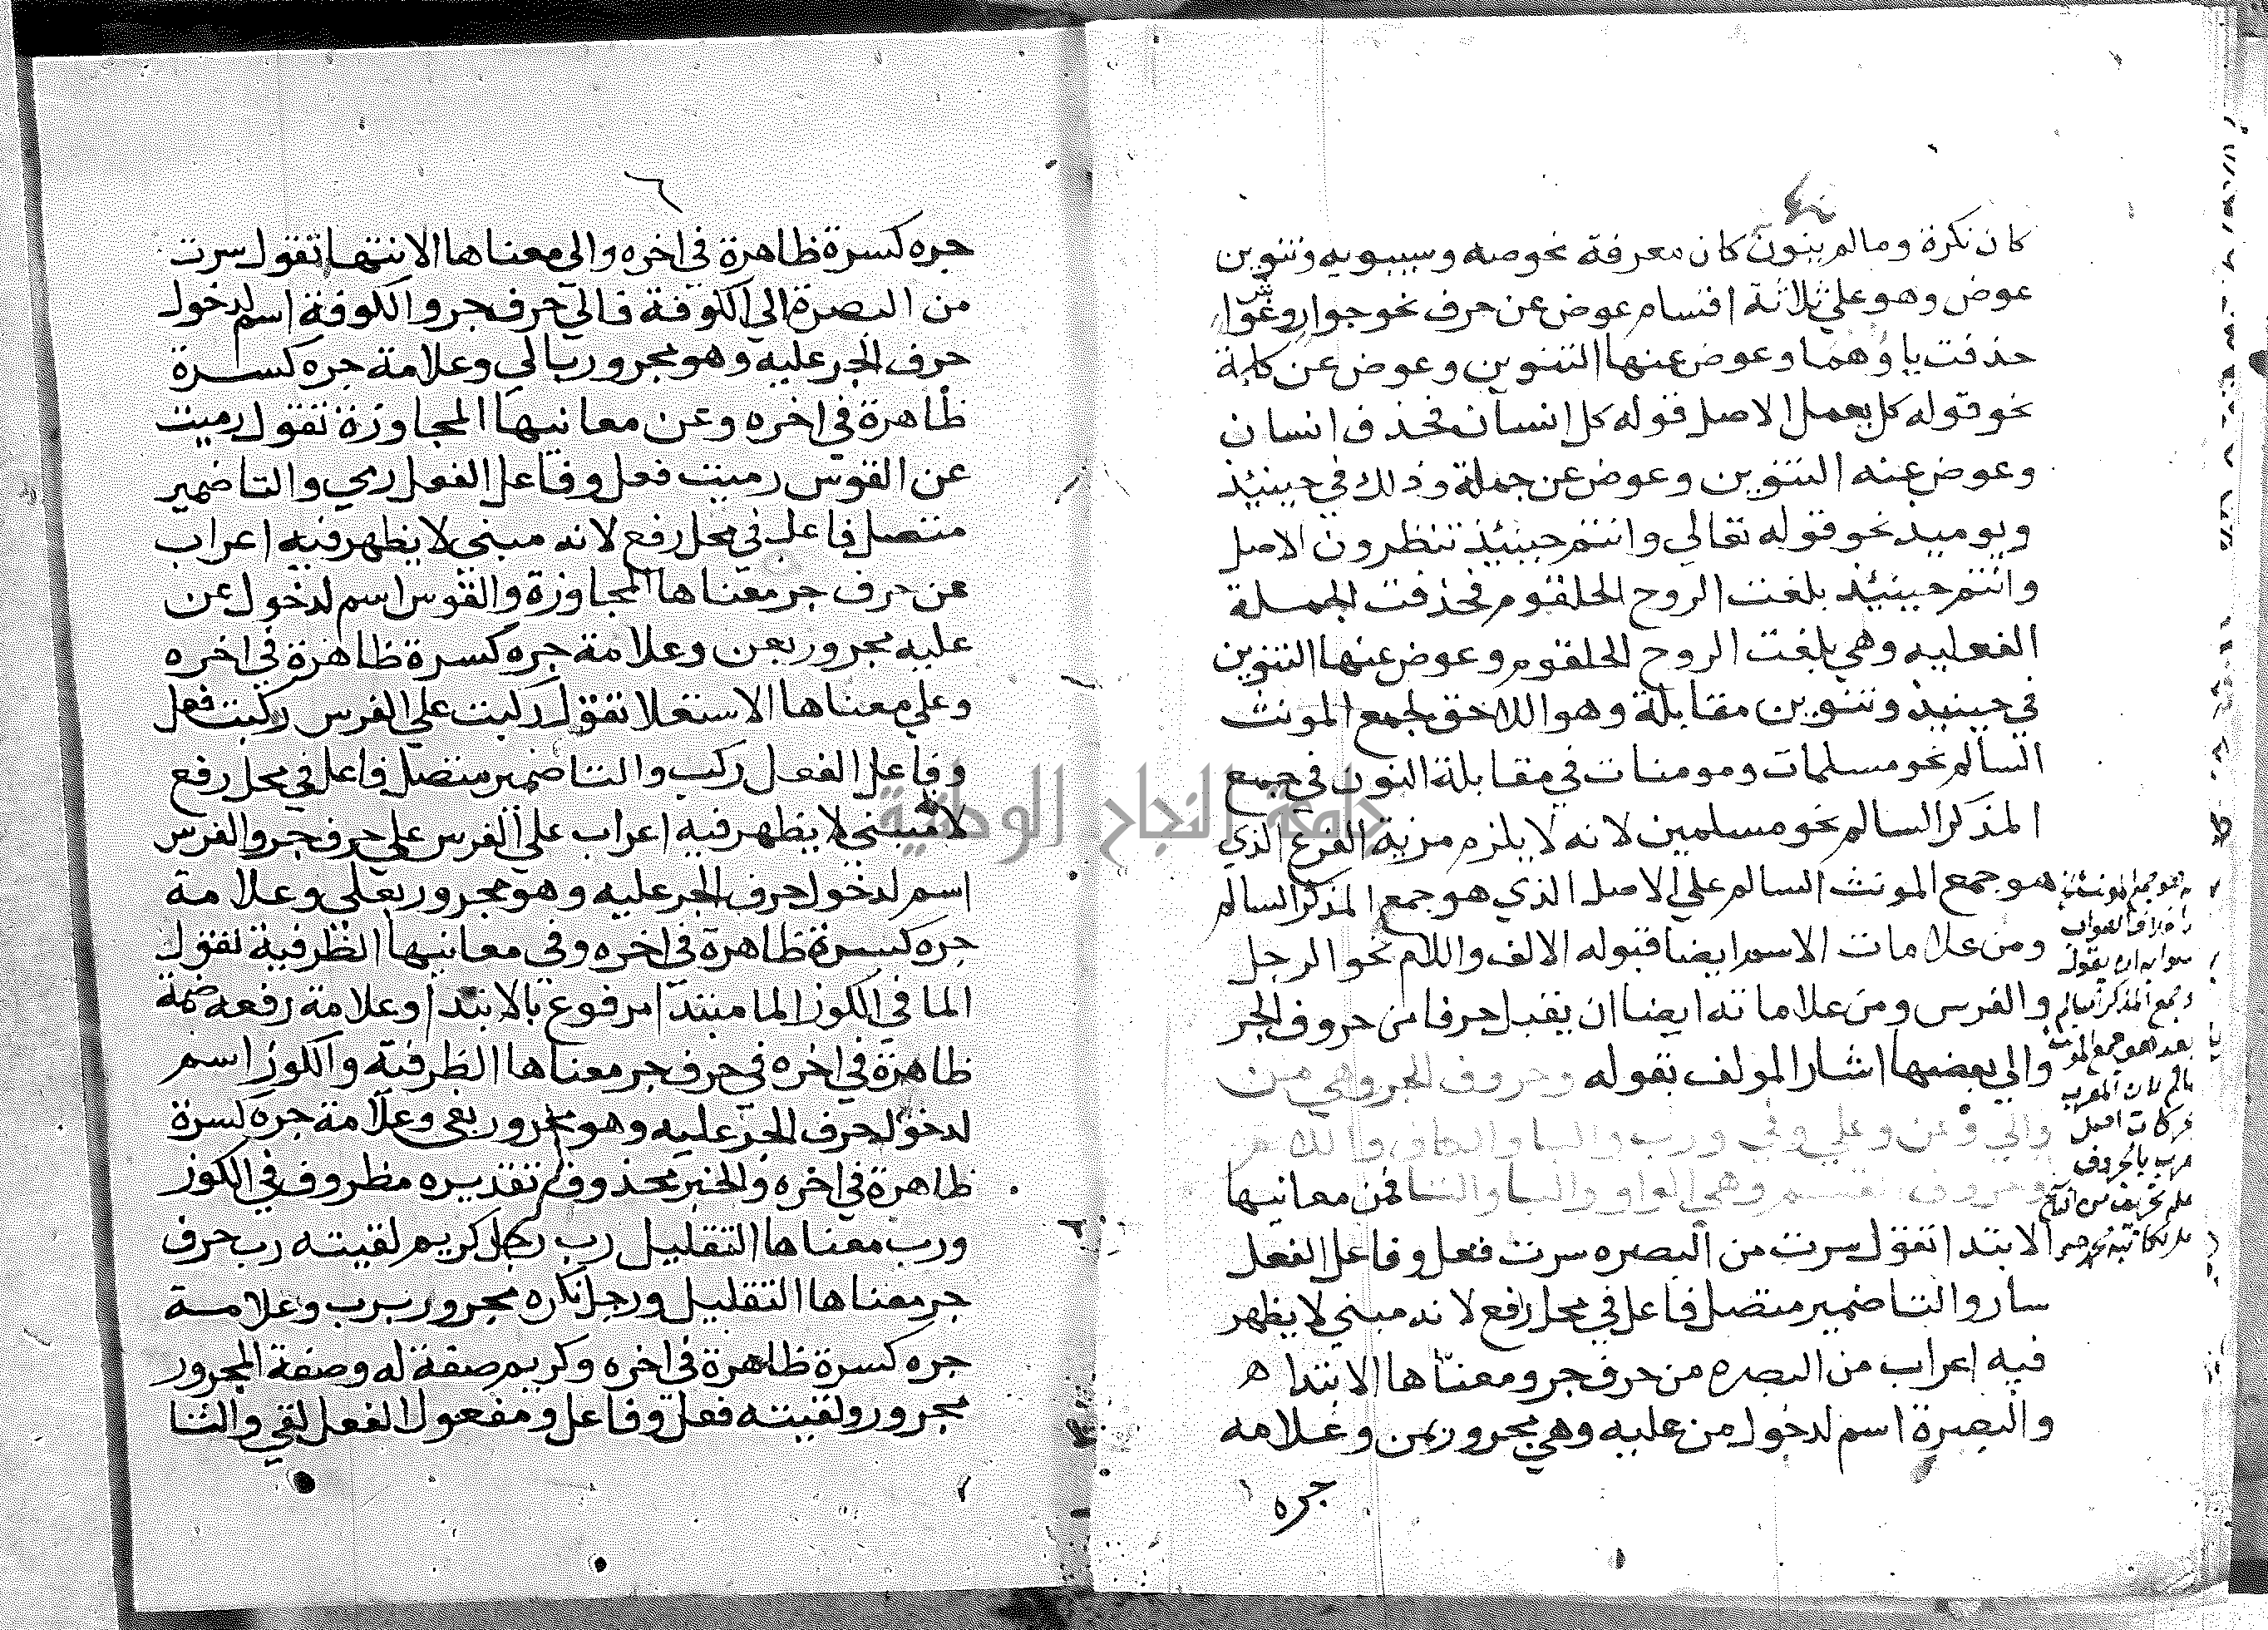 كان نكرة ومالم ينون كان معرفة نحو صه وسيبويه وتنوين
عوض وهو علي ثلاثة اقسام عوض عن حرف نحو جوار وغواش
حذفت ياوهما وعوض عنها التنوين وعوض عن كلمة
نحو قوله كل يعمل الاصل قوله كل انسان فحذف انسان
وعوض عنه التنوين وعوض عن جملة وذلك في حينيئذ
ويوميد نحو قوله تقالي وانتم حينيئذ تنظرون الاصل
وانتم حينيئذ بلغت الروح الحلقوم فحذفت الجملة
الفعليه وهي بلغت الروح الحلقوم وعوض عنها التنوين
في حينيذ وتنوين مقابلة وهو اللاحق لجمع المونث
السالم نحو مسلمات ومومنات في مقابلة النون في جمع
المذكر السالم نحو مسلمين لانه لا يلزم مزية الفرع الذي
هو جمع المونث السالم علي الاصل الذي هو جمع المذكر السالم
ومن علامات الاسم ايضا قبوله الالف واللام نحو الرجل
والفرس ومن علاماته ايضا ان يقبل حرفا من حروف الجر
والي بعضها اشار المولف بقوله وحروف الجر وهي من
والي وعن وعلي وفي ورب والبا والكاف واللام
وحروف القسم وهي الواو والبا والتا فمن معانيها
الابتدا تقول سرت من البصره سرت فعل وفاعل الفعل
سار والتا ضمير متصل فاعل في محل رفع لانه مبني لا يظهر
فيه اعراب من البصره من حرف جر ومعناها الابتدا ه
والبصرة اسم لدخول من عليه وهي مجرور بمن وعلامه
جره
هو جمع المونث
صوابه ان يقول
وجمع المذكر السالم
بعد هو جمع المونث
بالحروف
٦
جره كسرة ظاهرة في اخره والي معناها الانتها تقول سرت
من البصرة الي الكوفة فالي حرف جر والكوفة اسم لدخول
حرف الجر عليه وهو مجرور بالي وعلامة جره كسرة
ظاهرة في اخره وعن معانيها المجاوزة تقول رميت
عن القوس رميت فعل وفاعل الفعل رمي والتا ضمير
متصل فاعل في محل رفع لانه مبني لا يظهر فيه اعراب
عن حرف جر معناها المجاوزة والقوس اسم لدخول عن
عليه مجرور بعن وعلامة جره كسرة ظاهرة في اخره
وعلي معناها الاستعلا تقول ركبت علي الفرس ركبت فعل
وفاعل الفعل ركب والتا ضمير متصل فاعل في محل رفع
لانه مبني لا يظهر فيه اعراب علي الفرس علي حرف جر والفرس
اسم لدخول حرف الجر عليه وهو مجرور بعلي وعلامة
جره كسرة ظاهرة في اخره وفي معانيها الظرفية تقول
الما في الكوز الما مبتدا مرفوع بالابتدا وعلامة رفعه ضمة
ظاهرة في اخره في حرف جر معناها الظرفيه والكوز اسم
لدخول حرف الجر عليه وهو مجرور بفي وعلامة جره كسرة
ظاهرة في اخره والخبر محذوف تقديره مظروف في الكوز
ورب معناها التقليل رب رجل كريم لقيته رب حرف
جر معناها التقليل ورجل نكره مجرور برب وعلامة
جره كسرة ظاهرة في اخره وكريم صفة له وصفة المجرور
مجرور ولقيته فعل وفاعل ومفعول الفعل لقي والتا
جامعة النجاح الوطنية